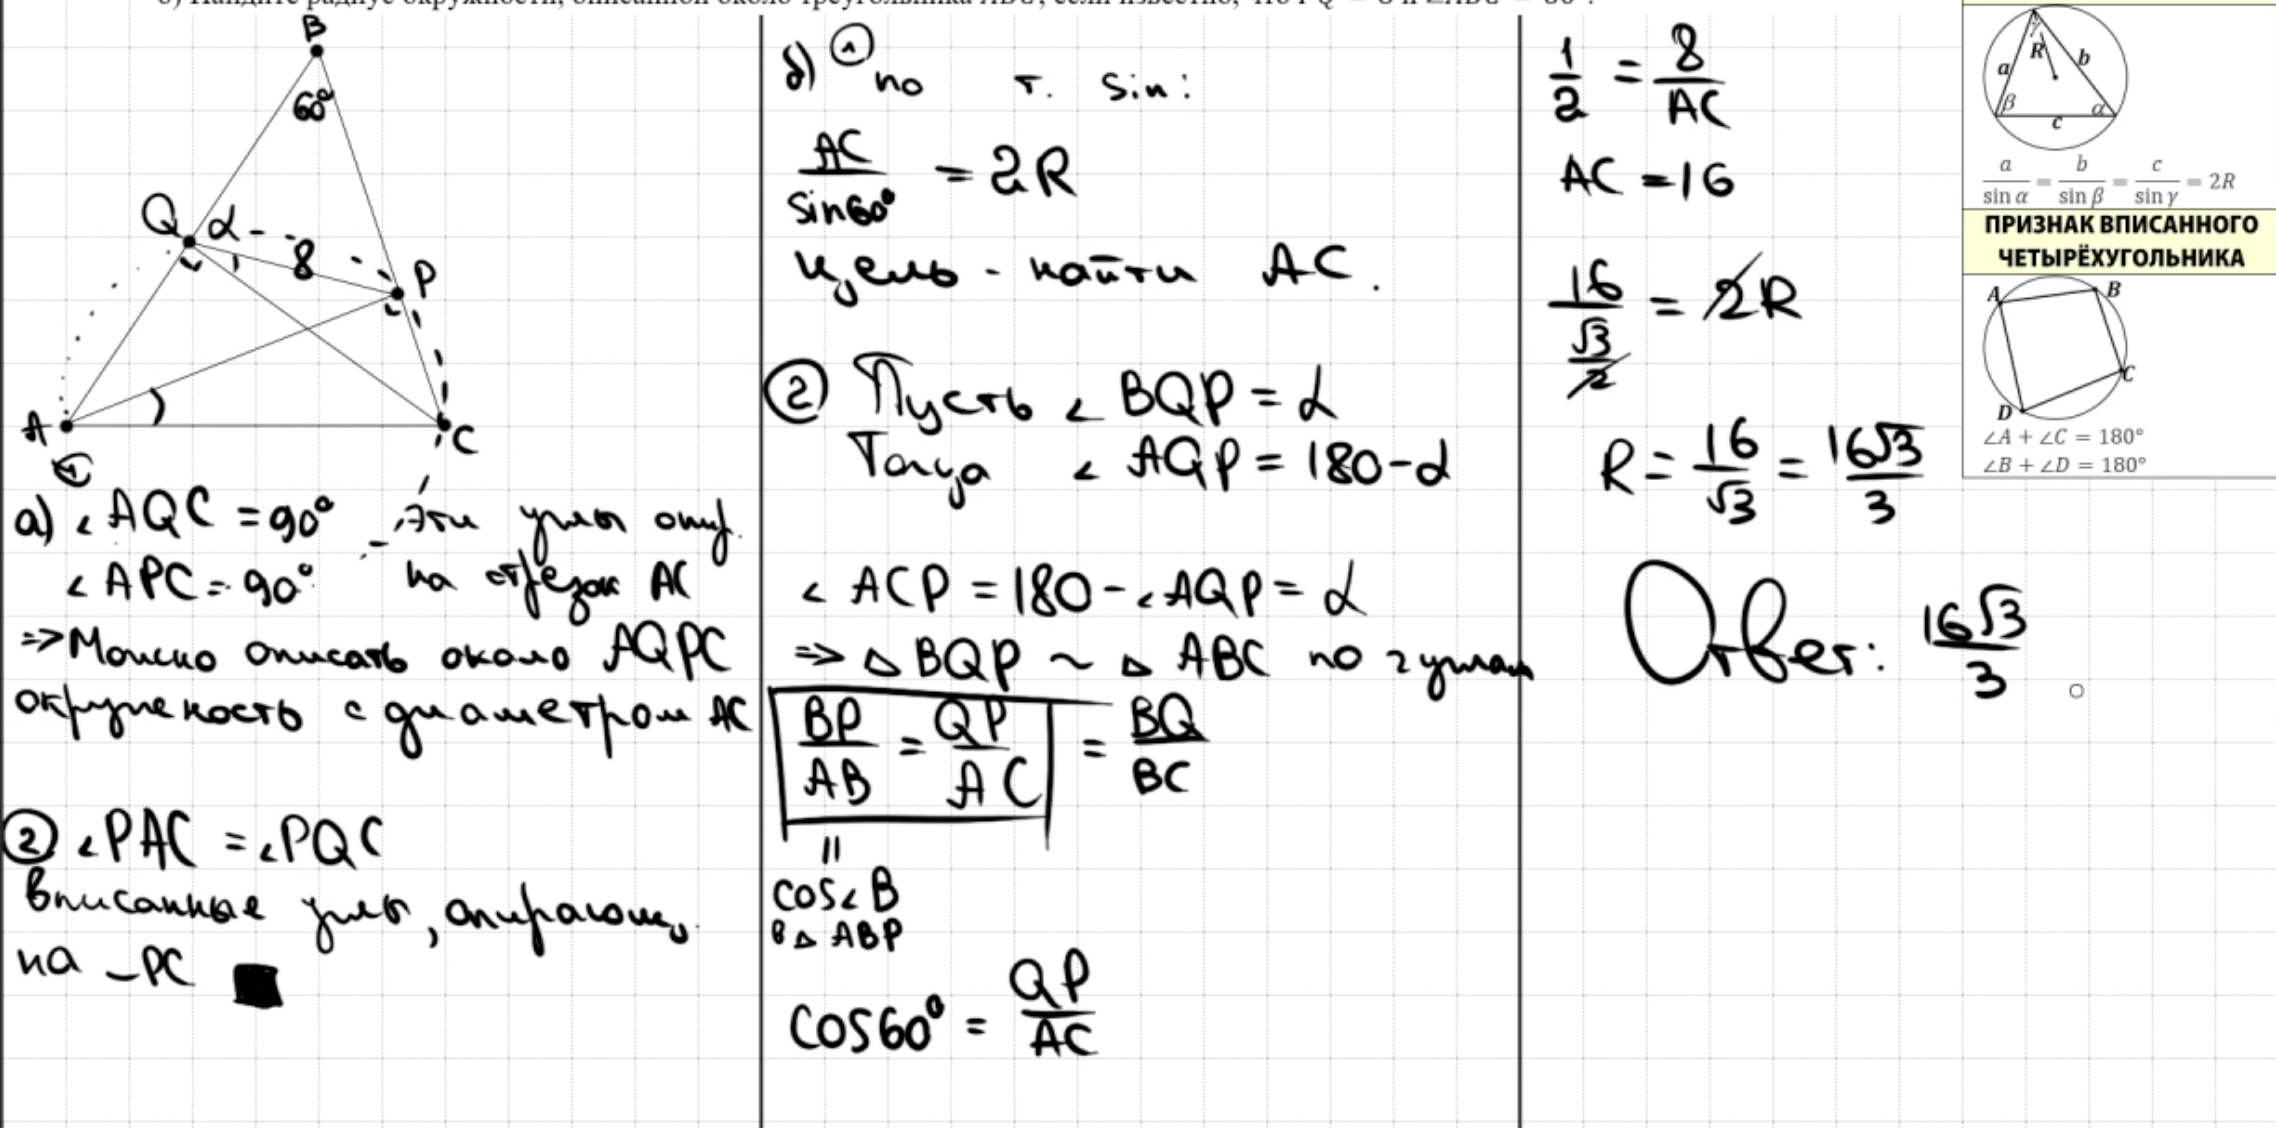 B
60°
Q α
8
P
A
C
а) ∠AQC = 90° - Эти углы опир.
∠APC = 90° на отрезок AC
=> Можно описать около AQPC
окружность с диаметром AC
② ∠PAC = ∠PQC
Вписанные углы, опирающ.
на ⌣PC
б) ①
по т. sin:
AC/sin60° = 2R
Цель - найти AC.
② Пусть ∠BQP = α
Тогда ∠AQP = 180-α
∠ACP = 180-∠AQP = α
=> △BQP ~ △ABC по 2 углам
BP/AB = QP/AC = BQ/BC
=
cos∠B
в △ABP
cos60° = QP/AC
1/2 = 8/AC
AC = 16
16/(√3/2) = 2R
R = 16/√3 = 16√3/3
Ответ: 16√3/3
R
a b
β α
c
a/sin α = b/sin β = c/sin γ = 2R
ПРИЗНАК ВПИСАННОГО
ЧЕТЫРЁХУГОЛЬНИКА
A B
C
D
∠A + ∠C = 180°
∠B + ∠D = 180°